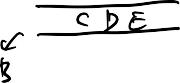 C D E
B